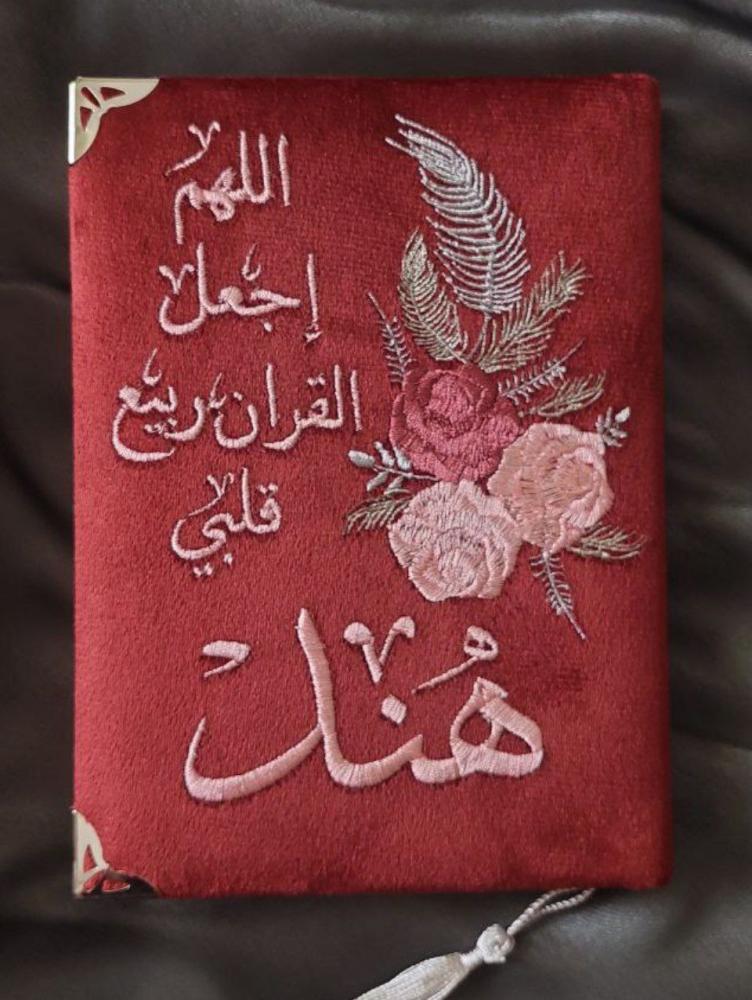 اللهم
إجعل
القران ربيع
قلبي
هند